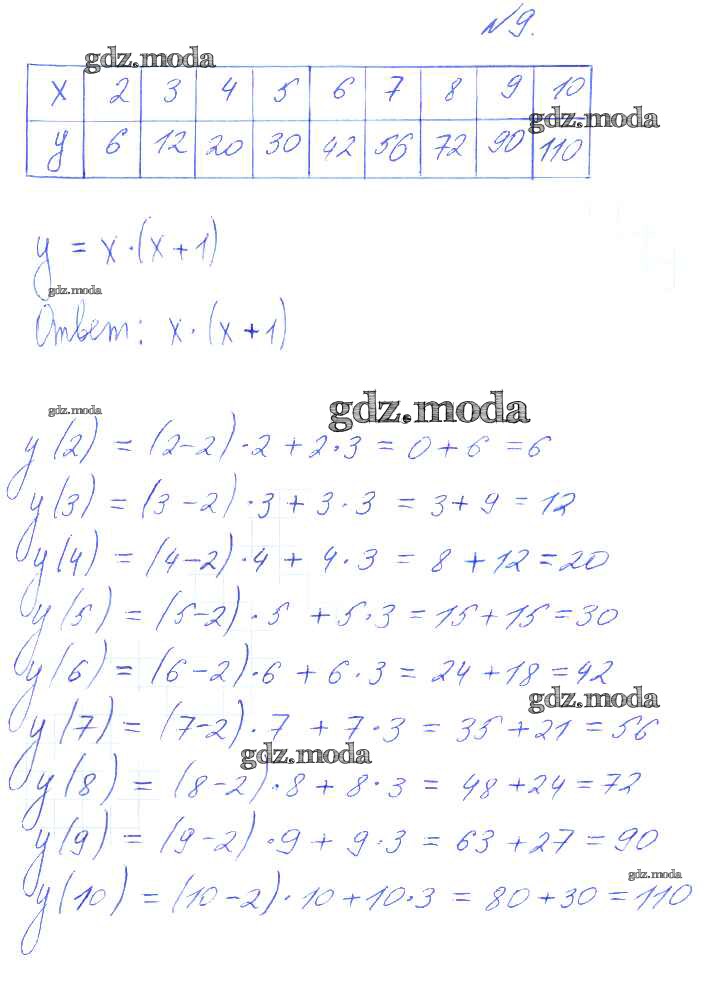 №9.
gdz.moda
x 2 3 4 5 6 7 8 9 10
gdz.moda
y 6 12 20 30 42 56 72 90 110
y = x·(x+1)
gdz.moda
Ответ: x·(x+1)
gdz.moda
gdz.moda
y(2) = (2-2)·2+2·3 = 0+6 = 6
y(3) = (3-2)·3+3·3 = 3+9 = 12
y(4) = (4-2)·4+4·3 = 8+12 = 20
y(5) = (5-2)·5+5·3 = 15+15 = 30
y(6) = (6-2)·6+6·3 = 24+18 = 42
gdz.moda
y(7) = (7-2)·7+7·3 = 35+21 = 56
gdz.moda
y(8) = (8-2)·8+8·3 = 48+24 = 72
y(9) = (9-2)·9+9·3 = 63+27 = 90
gdz.moda
y(10) = (10-2)·10+10·3 = 80+30 = 110